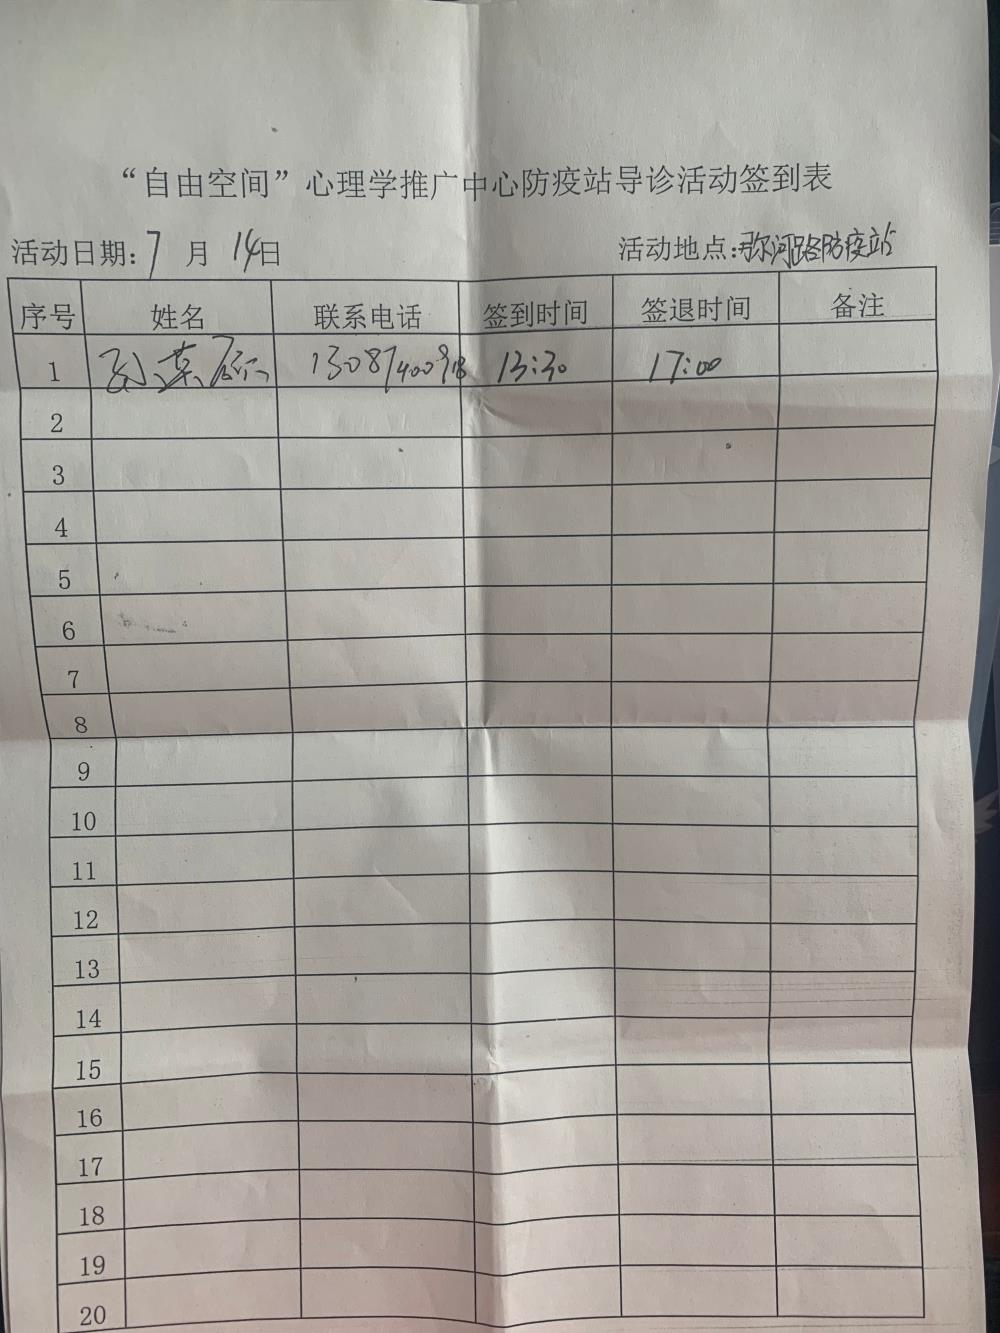 “自由空间”心理学推广中心防疫站导诊活动签到表
活动日期: 7 月 14日 活动地点: 弥河路防疫站
序号 姓名 联系电话 签到时间 签退时间 备注
1 13087400918 13:30 17:00
2
3
4
5
6
7
8
9
10
11
12
13
14
15
16
17
18
19
20